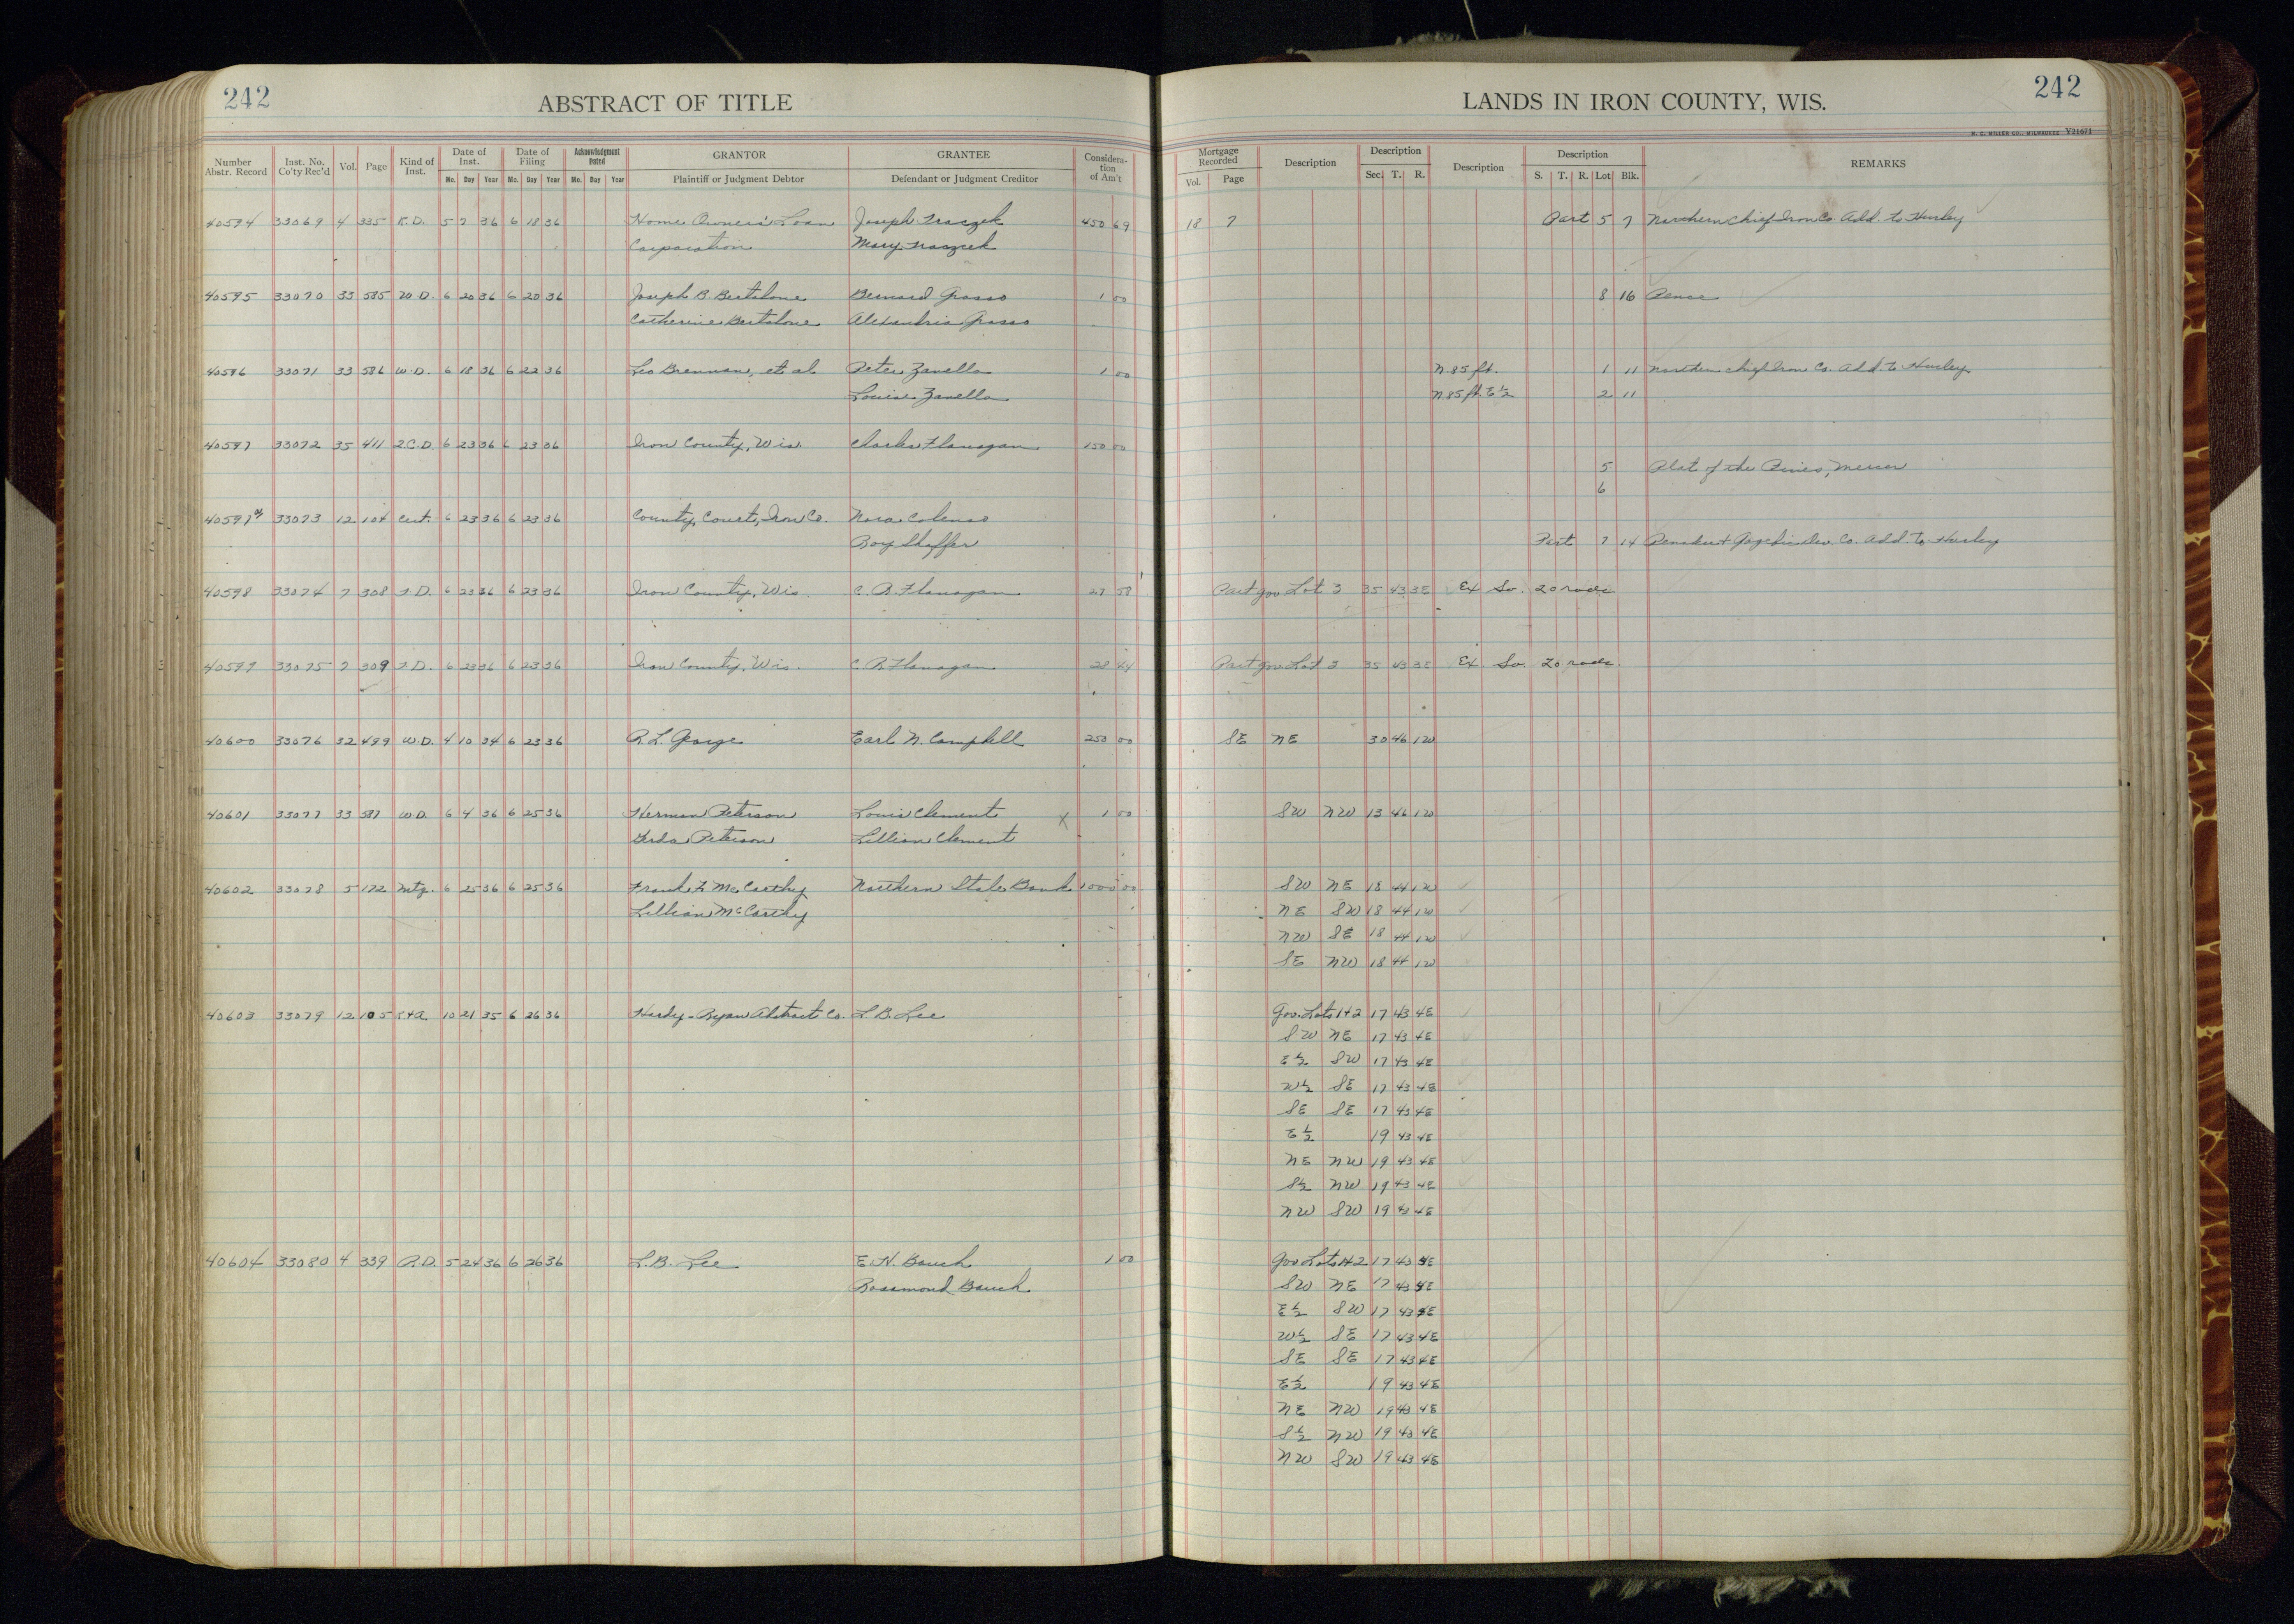 242 ABSTRACT OF TITLE LANDS IN IRON COUNTY, WIS. 242
H. C. MILLER CO., MILWAUKEE V21671
Number Abstr. Record Inst. No. Co'ty Rec'd Vol. Page Kind of Inst. Date of Inst. Mo. Day Year Date of Filing Mo. Day Year Acknowledgment Dated Mo. Day Year GRANTOR Plaintiff or Judgment Debtor GRANTEE Defendant or Judgment Creditor Consideration of Am't Mortgage Recorded Vol. Page Description Description Sec. T. R. Description Description S. T. R. Lot Blk. REMARKS
40594 33069 4 335 R.D. 5 7 36 6 18 36 Home Owners' Loan Joseph Traczek 450 69 18 7 Part 5 7 Northern Chief Iron Co. Add. to Hurley
Corporation Mary Traczek
40595 33070 33 585 W.D. 6 20 36 6 20 36 Joseph B. Bertalone Bernard Grasso 1 00 8 16 Pence
Catherine Bertalone Alexandria Grasso
40596 33071 33 586 W.D. 6 18 36 6 22 36 Leo Brennan, et al Peter Zanella 1 00 N. 85 ft. 1 11 Northern Chief Iron Co. Add. to Hurley
Louise Zanella N. 85 ft. E½ 2 11
40597 33072 35 411 2.C.D. 6 23 36 6 23 36 Iron County, Wis. Charles Flanagan 150 00
5 Plat of the Pines, Mercer
6
40597½ 33073 12 104 Cert. 6 23 36 6 23 36 County Court, Iron Co. Nora Colenso
Roy Sheffer Part 7 14 Penokee & Gogebic Dev. Co. Add. to Hurley
40598 33074 7 308 T.D. 6 23 36 6 23 36 Iron County, Wis. C. R. Flanagan 27 58 Part Gov Lot 3 35 43 3E Ex So. 20 rods
40599 33075 7 309 T.D. 6 23 36 6 23 36 Iron County, Wis. C. R. Flanagan 28 44 Part Gov Lot 3 35 43 3E Ex So. 20 rods.
40600 33076 32 499 W.D. 4 10 34 6 23 36 R. L. George Earl N. Campbell 250 00 SE NE 30 46 1W
40601 33077 33 587 W.D. 6 4 36 6 25 36 Herman Peterson Louis Clement X 1 00 SW NW 13 46 1W
Gerda Peterson Lillian Clement
40602 33078 5 172 Mtg. 6 25 36 6 25 36 Frank F. McCarthy Northern State Bank 1000 00 SW NE 18 44 1W
Lillian McCarthy NE SW 18 44 1W
NW SE 18 44 1W
SE NW 18 44 1W
40603 33079 12 105 10 21 35 6 26 36 Hardy-Ryan Abstract Co. L. B. Lee Gov. Lots 1+2 17 43 4E
SW NE 17 43 4E
E½ SW 17 43 4E
W½ SE 17 43 4E
SE SE 17 43 4E
E½ 19 43 4E
NE NW 19 43 4E
S½ NW 19 43 4E
NW SW 19 43 4E
40604 33080 4 339 5 24 36 6 26 36 L. B. Lee E. H. Bauch 1 00 Gov Lots 1+2 17 43 4E
Rosamond Bauch SW NE 17 43 4E
E½ SW 17 43 4E
W½ SE 17 43 4E
SE SE 17 43 4E
E½ 19 43 4E
NE NW 19 43 4E
S½ NW 19 43 4E
NW SW 19 43 4E